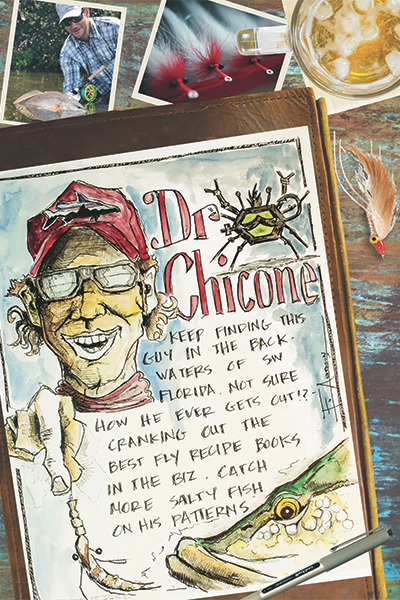 Dr
Chicone
KEEP FINDING THIS
GUY IN THE BACK-
WATERS OF SW
FLORIDA. NOT SURE
HOW HE EVER GETS OUT!?-
CRANKING OUT THE
BEST FLY RECIPE BOOKS
IN THE BIZ. CATCH
MORE SALTY FISH
ON HIS PATTERNS